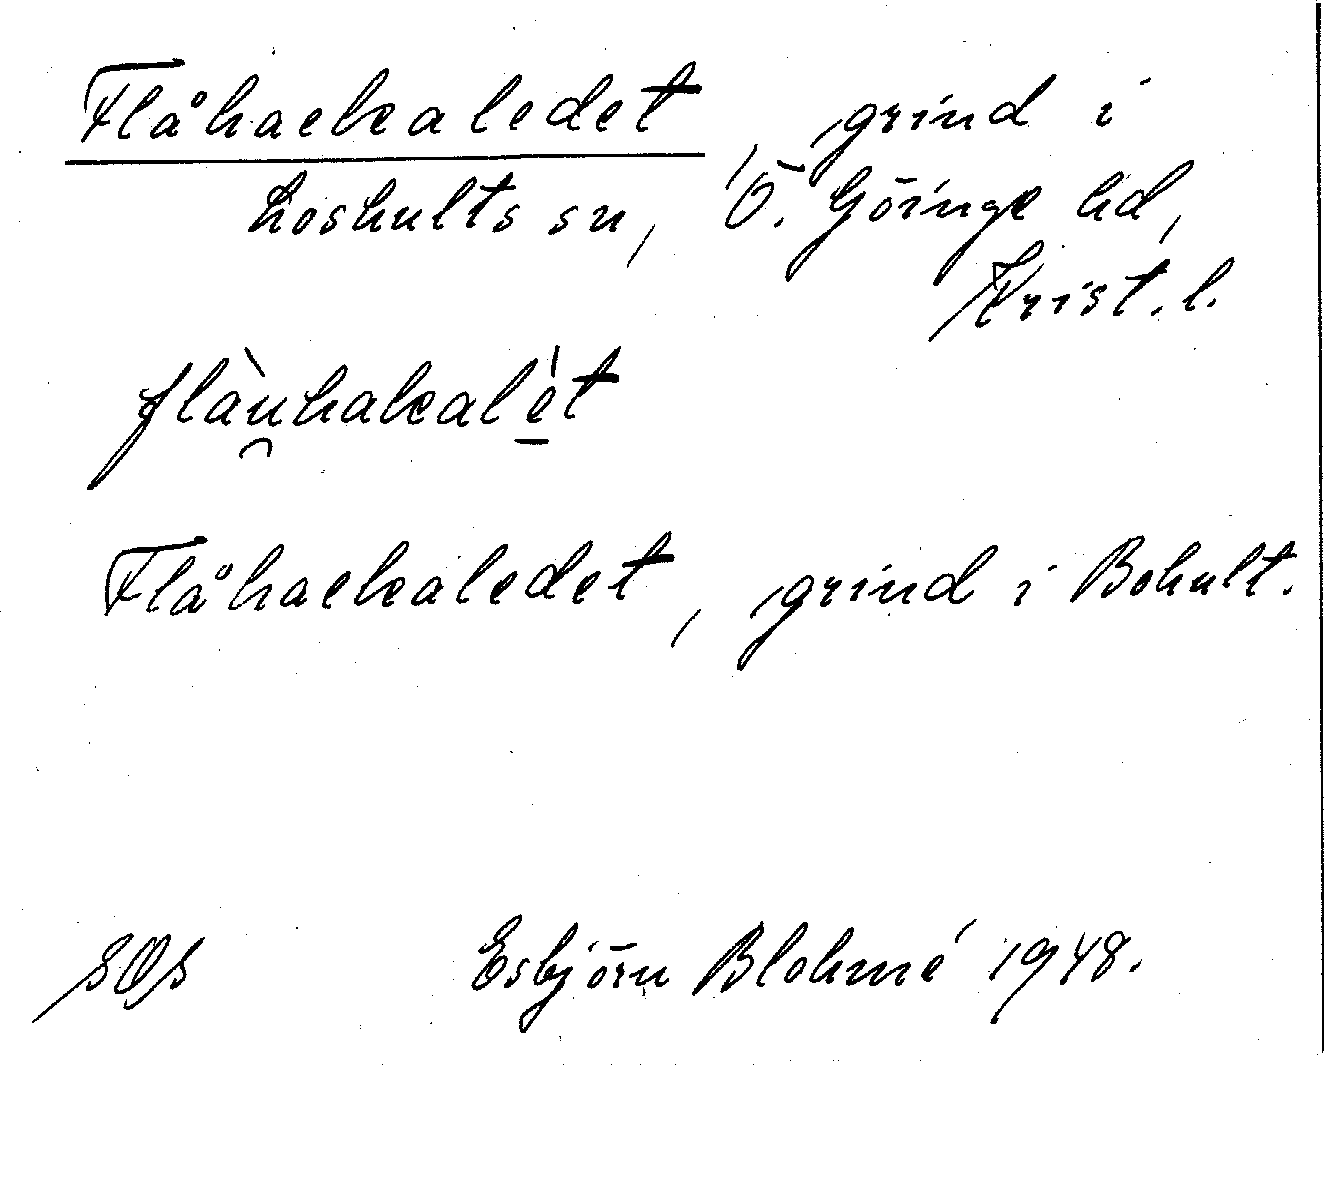 Flåhackaledet, grind i
Loshults sn, Ö. Göinge hd,
Krist. l.
flàu̯hakalè̠t
Flåhackaledet, grind i Bohult.
SOS Esbjörn Blohmé 1948.